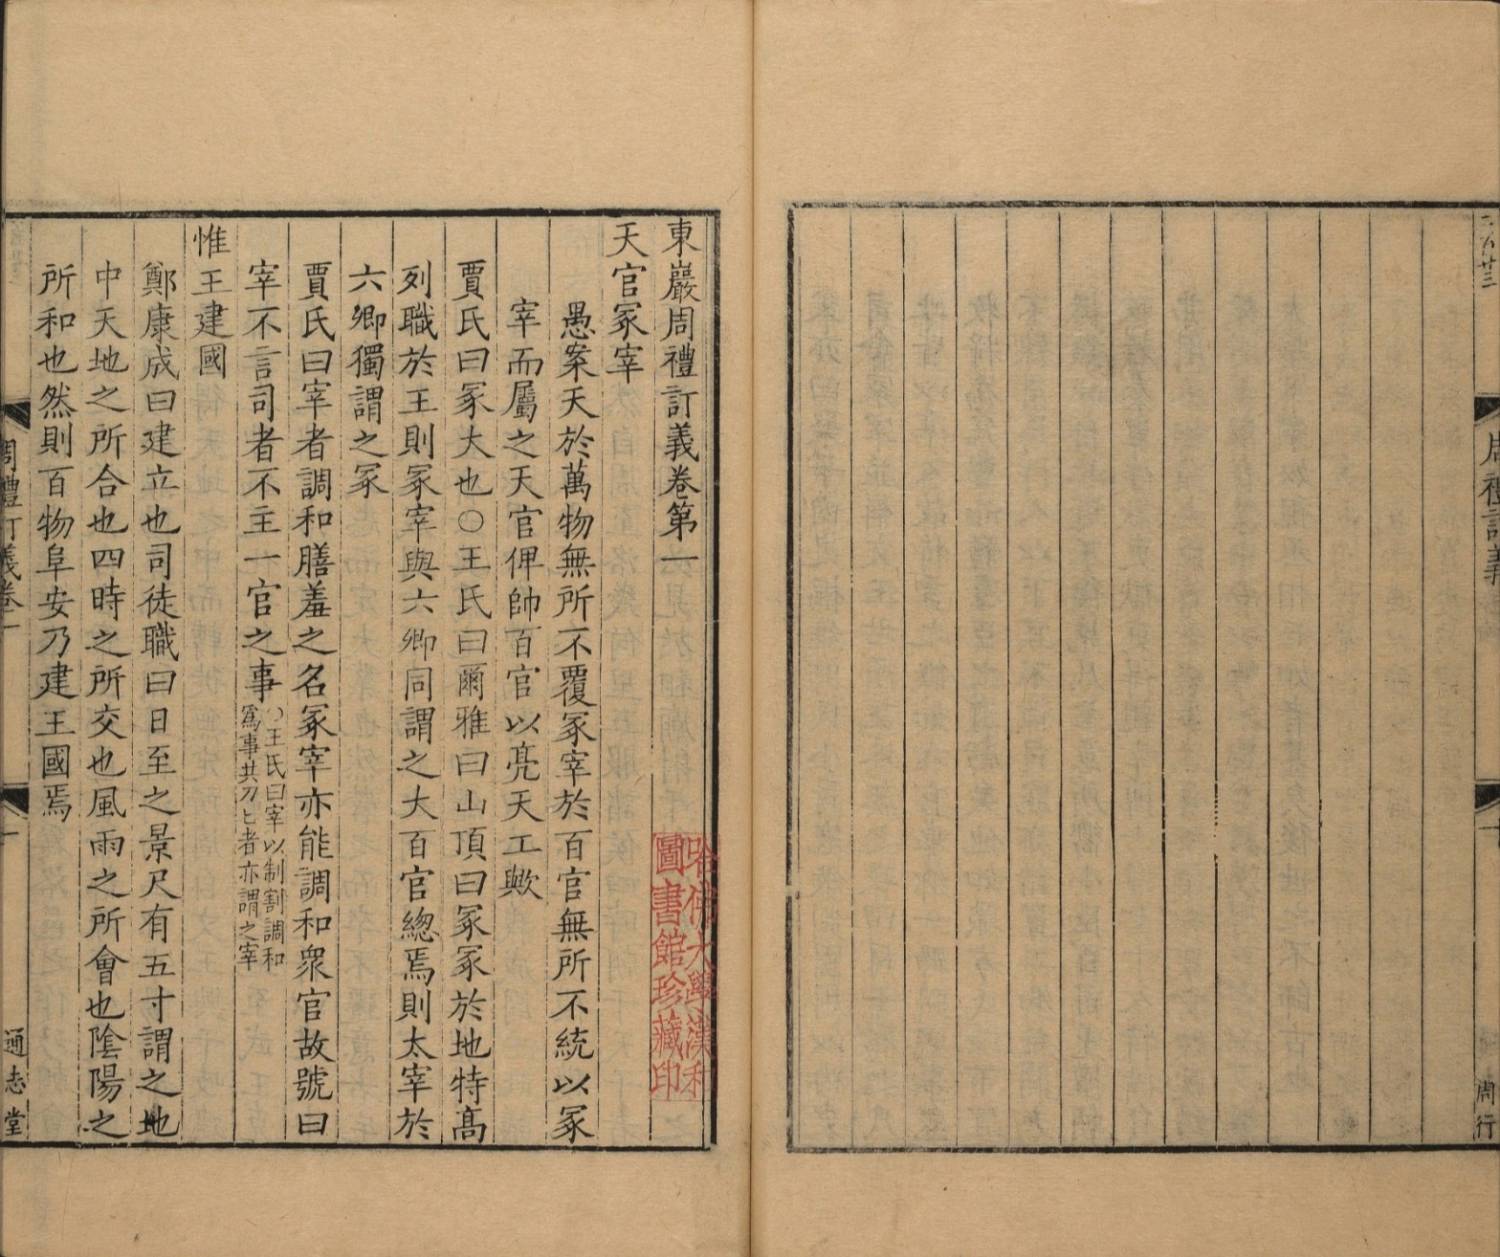 周禮訂義
周行
東巖周禮訂義卷第一
天官冢宰
愚案天於萬物無所不覆冢宰於百官無所不統以冢
宰而屬之天官俾帥百官以亮天工歟
賈氏曰冢大也○王氏曰爾雅曰山頂曰冢冢於地特髙
列職於王則冢宰與六卿同謂之大百官總焉則太宰於
六卿獨謂之冢
賈氏曰宰者調和膳羞之名冢宰亦能調和衆官故號曰
宰不言司者不主一官之事○王氏曰宰以制割調和
爲事共刀匕者亦謂之宰
惟王建國
鄭康成曰建立也司徒職曰日至之景尺有五寸謂之地
中天地之所合也四時之所交也風雨之所會也陰陽之
所和也然則百物阜安乃建王國焉
周禮訂義卷一
一
通志堂
哈佛大學漢和
圖書館珍藏印